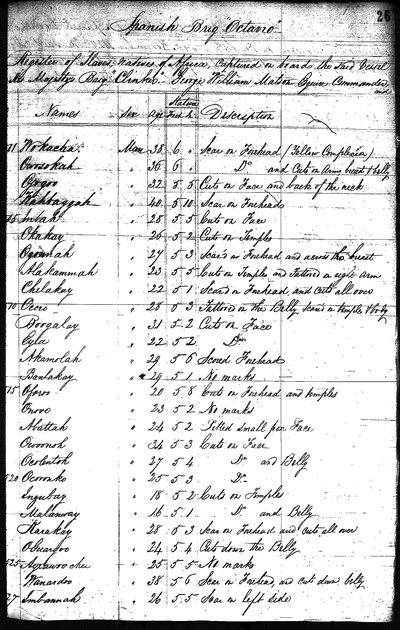 26
Spanish Brig "Octavio"
Register of Slaves, natives of Africa, Captured on board the said Vessel
His Majesty's Brig "Clinker" George William Matson Esquire Commander
Names Sex age Stature Feet In. Description
11 Wokacha Men 38 6 " Scar on Forehead (Yellow Complexion)
Owesokah " 36 6 " Do and Cuts on Arms breast & belly
" 32 5 5 Cuts on Face and back of the neck
" 40 5 10 Scar on Forehead
" 28 5 5 Cuts on Face
Okakay " 26 5 2 Cuts on Temples
" 27 5 3 Scars on Forehead and across the breast
Alakammah " 23 5 5 Cuts on Temples and Tattooed on right arm
Chelakay " 22 5 1 Scars on Forehead and Cuts all over
70 Ocoro " 28 5 3 Tattooed on the Belly,
Boogalay " 31 5 2 Cuts on Face
Eyla " 22 5 2 Do
Akamolah " 29 5 6 Scored Forehead
Banlakay " 29 5 1 No marks
75 Oforo " 20 5 8 Cuts on Forehead and temples
Onovo " 23 5 2 No marks
Abuttah " 24 5 2 Pitted small pox Face
Owoonoh " 34 5 3 Cuts on Face
Ocolentoh " 27 5 4 Do and Belly
520 Ocoronko " 25 5 3 Do
Ingubay " 18 5 2 Cuts on Temples
Malamway " 16 5 1 Do and Belly
Karakay " 28 5 3 Scar on Forehead and cuts all over
" 24 5 4 Cut down the Belly
525 " 25 5 5 No marks
Wanardoo " 38 5 6 Scar on Forehead, and cut down belly
27 Sonbannah " 26 5 5 Scar on left side